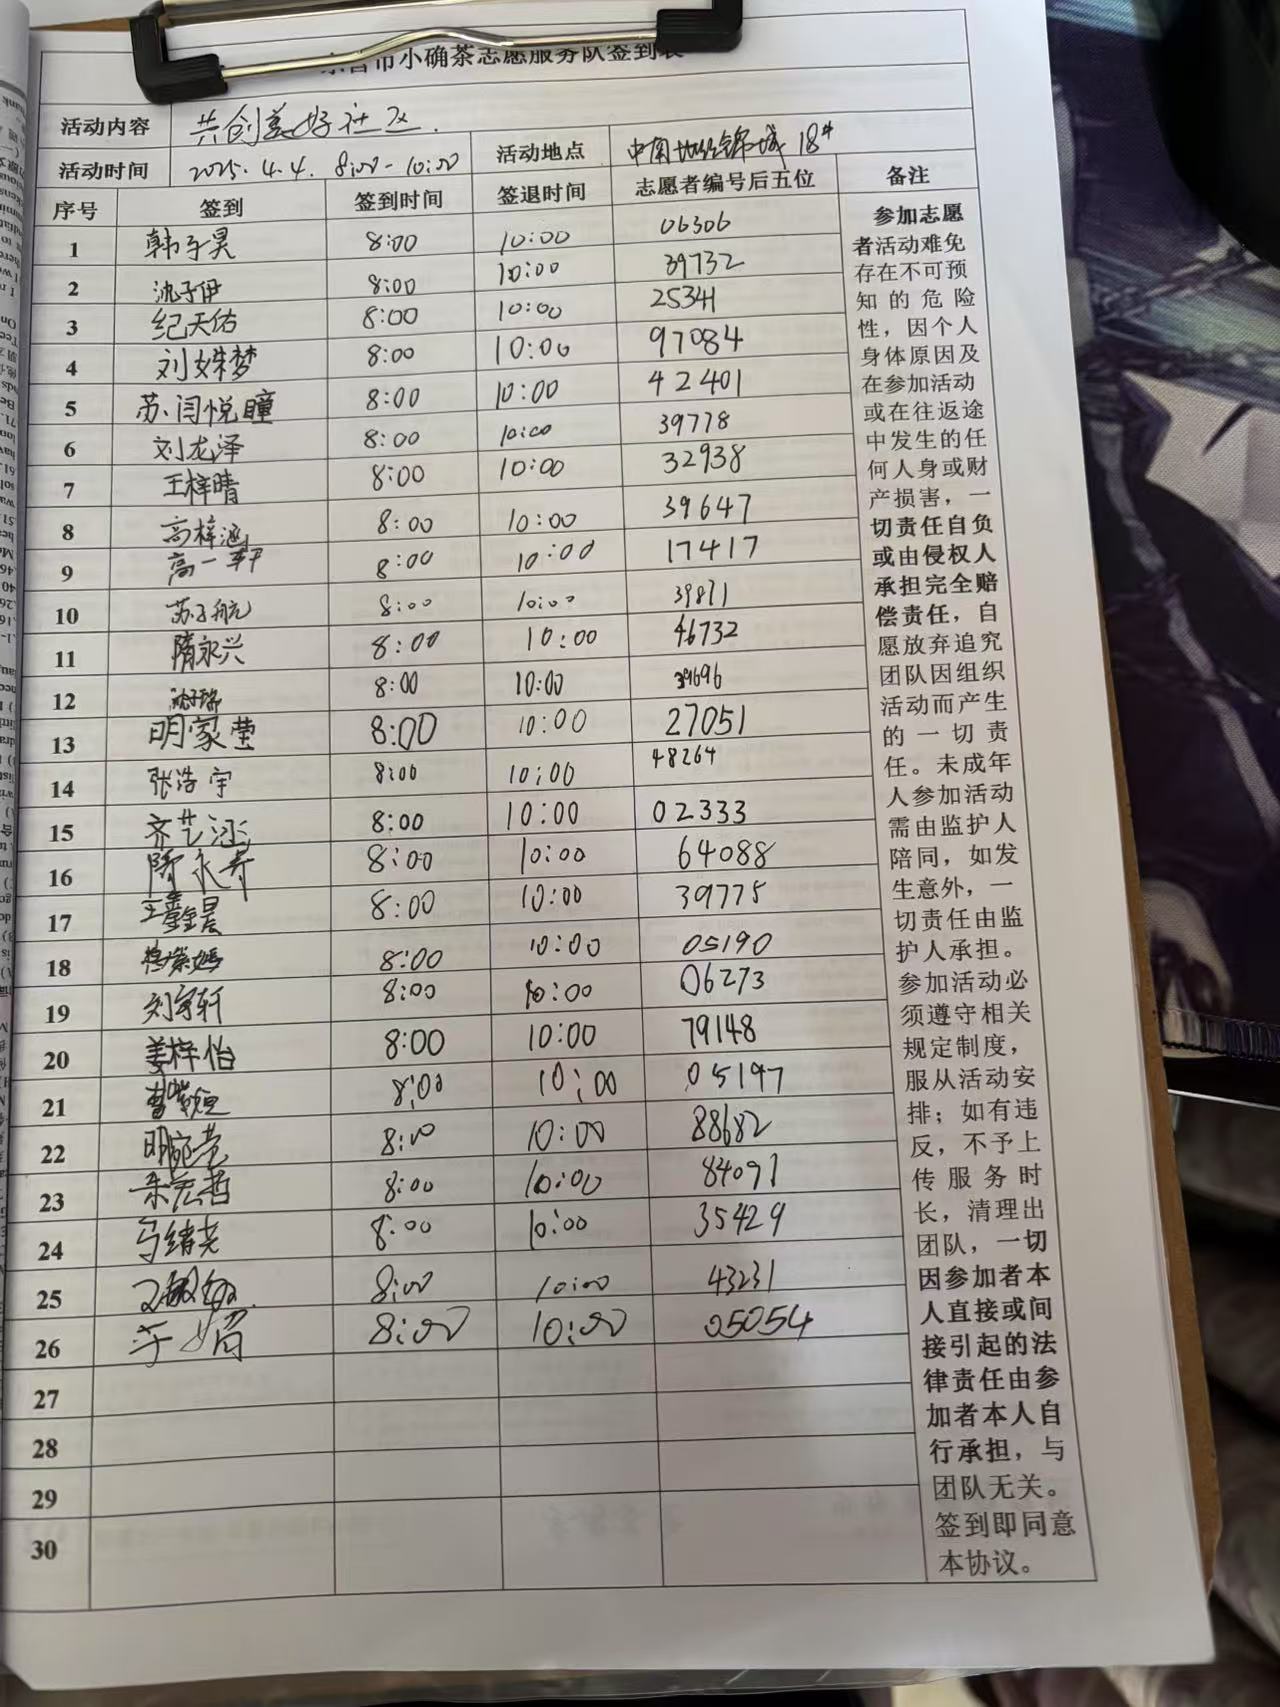 市小确茶志愿服务队签到表
活动内容 共创美好社区.
活动时间 2025.4.4. 8:00-10:00 活动地点 中南地锦城 18#
序号 签到 签到时间 签退时间 志愿者编号后五位 备注
1 韩子昊 8:00 10:00 06306
2 沈子伊 8:00 10:00 39732
3 纪天佑 8:00 10:00 25341
4 刘姝梦 8:00 10:00 97084
5 苏闫悦瞳 8:00 10:00 42401
6 刘龙泽 8:00 10:00 39778
7 王梓晴 8:00 10:00 32938
8 高梓涵 8:00 10:00 39647
9 高一 8:00 10:00 17417
10 苏子航 8:00 10:00 39811
11 隋永兴 8:00 10:00 46732
12 8:00 10:00 39696
13 明家莹 8:00 10:00 27051
14 张浩宇 8:00 10:00 48264
15 齐艺涵 8:00 10:00 02333
16 隋永寿 8:00 10:00 64088
17 王鑫昊 8:00 10:00 39775
18 8:00 10:00 05190
19 刘宇轩 8:00 10:00 06273
20 姜梓怡 8:00 10:00 79148
21 8:00 10:00 05197
22 明宛莹 8:00 10:00 88682
23 宋宏哲 8:00 10:00 84091
24 马绪尧 8:00 10:00 35429
25 8:00 10:00 43231
26 于娟 8:00 10:00 05054
27
28
29
30
参加志愿
者活动难免
存在不可预
知的危险
性，因个人
身体原因及
在参加活动
或在往返途
中发生的任
何人身或财
产损害，一
切责任自负
或由侵权人
承担完全赔
偿责任，自
愿放弃追究
团队因组织
活动而产生
的一切责
任。未成年
人参加活动
需由监护人
陪同，如发
生意外，一
切责任由监
护人承担。
参加活动必
须遵守相关
规定制度，
服从活动安
排；如有违
反，不予上
传服务时
长，清理出
团队，一切
因参加者本
人直接或间
接引起的法
律责任由参
加者本人自
行承担，与
团队无关。
签到即同意
本协议。